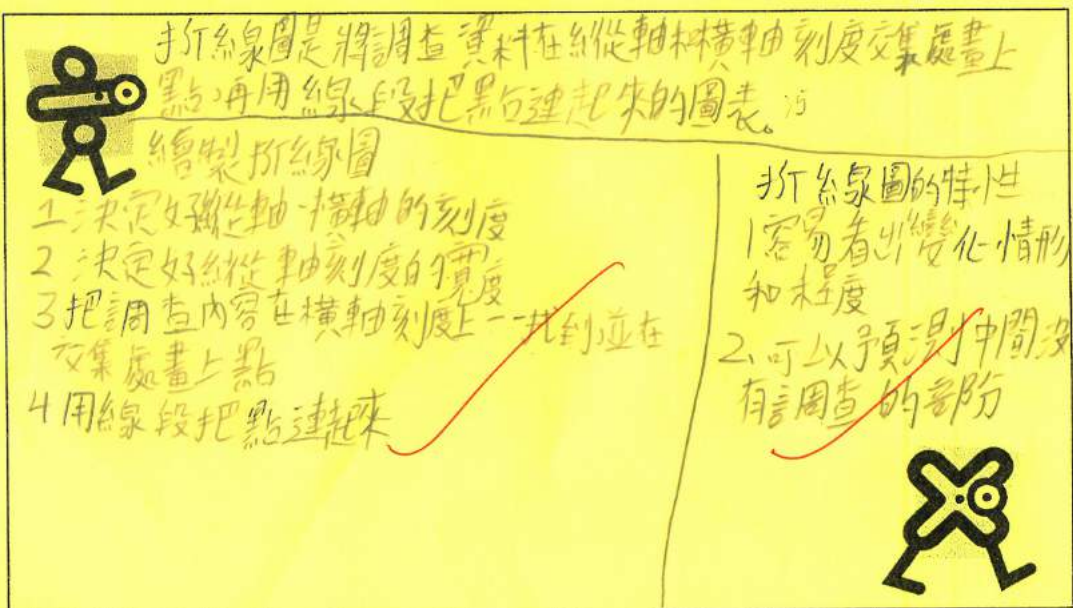 折線圖是將調查資料在縱軸和橫軸刻度交集處畫上
點,再用線段把點連起來的圖表。
繪製折線圖
1 決定好縱軸、橫軸的刻度
2 決定好縱軸刻度的寬度
3 把調查內容在橫軸刻度上一一找到,並在
交集處畫上點
4 用線段把點連起來
折線圖的特性
1 容易看出變化情形
和程度
2、可以預測中間沒
有調查的部份